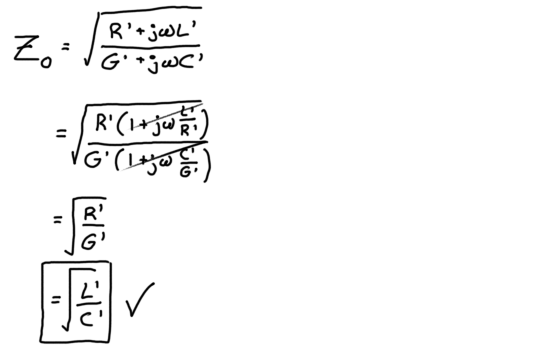 Z₀ = √((R' + jωL') / (G' + jωC'))
= √((R'(1 + jω L'/R')) / (G'(1 + jω C'/G')))
= √(R'/G')
= √(L'/C') ✓